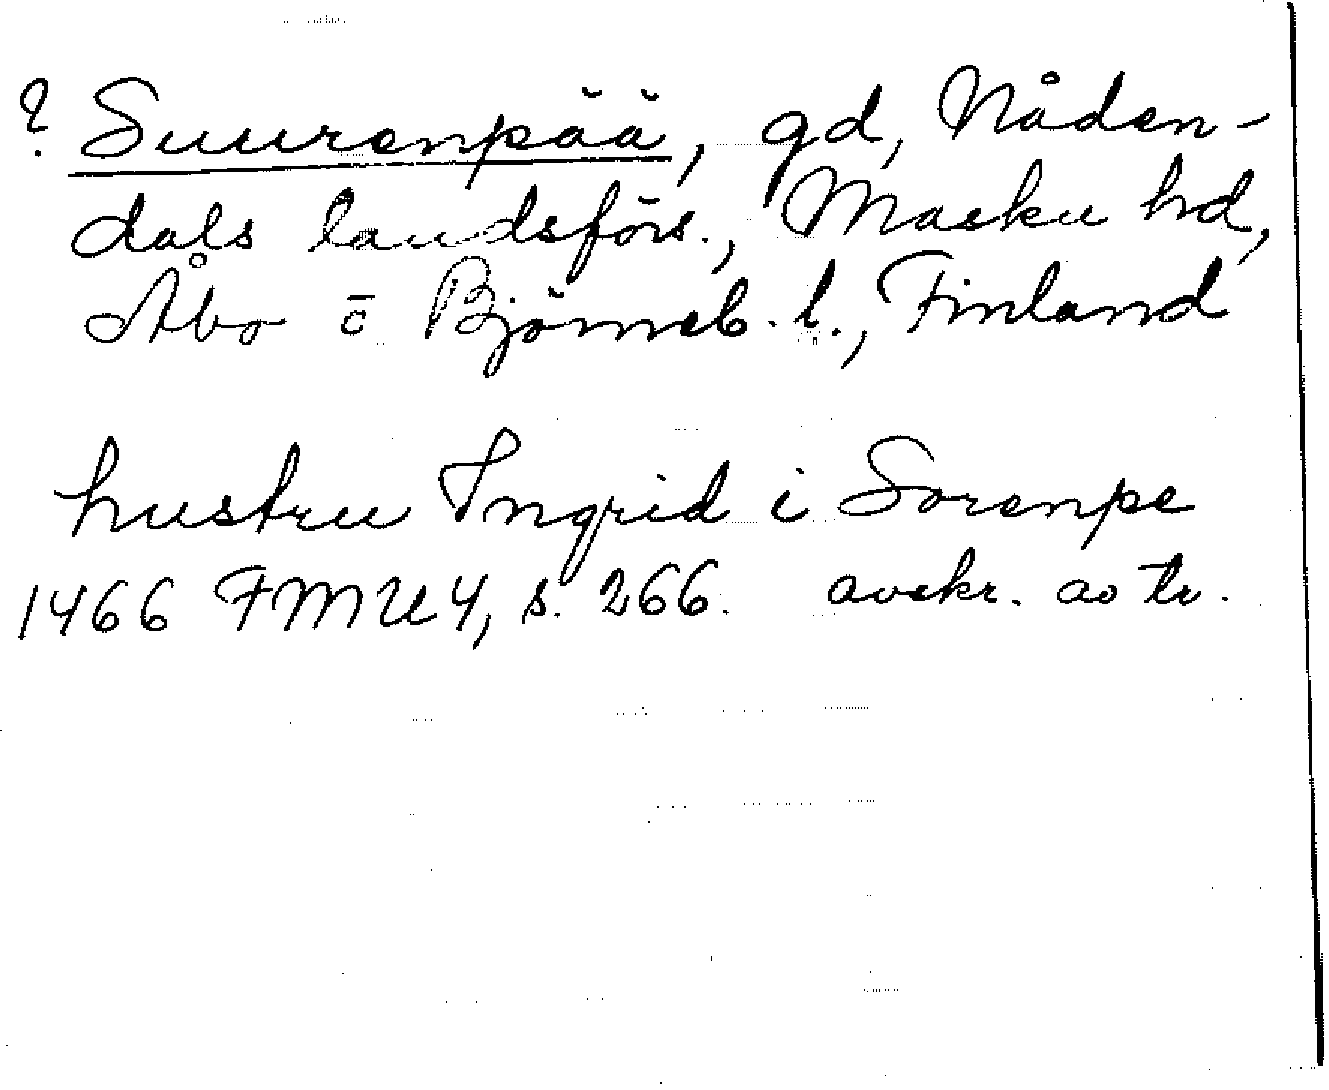 ? Suurenpää, gd, Nåden-
dals landsförs., Masku hd,
Åbo o Björneb. l., Finland
hustru Ingrid i Sorenpe
1466 FMU 4, s. 266. avskr. av tr.